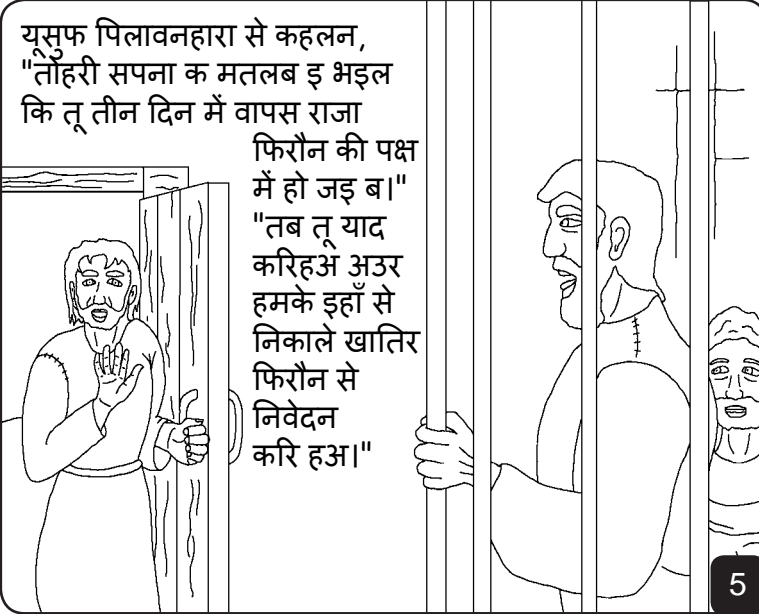 यूसुफ पिलावनहारा से कहलन,
"तोहरी सपना क मतलब इ भइल
कि तू तीन दिन में वापस राजा
फिरौन की पक्ष
में हो जइ ब।"
"तब तू याद
करिहअ अउर
हमके इहाँ से
निकाले खातिर
फिरौन से
निवेदन
करि हअ।"
5